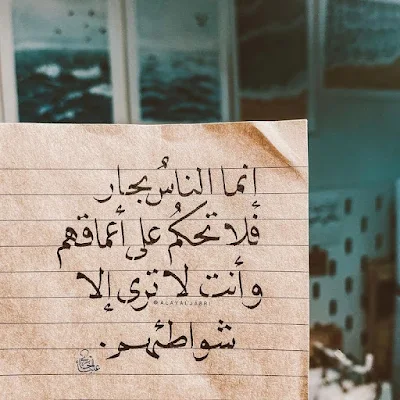 إنما الناسُ بحار
فلا تحكمُ على أعماقهم
وأنت لا ترى إلا
@ALAYALJABRI
شواطئهم.